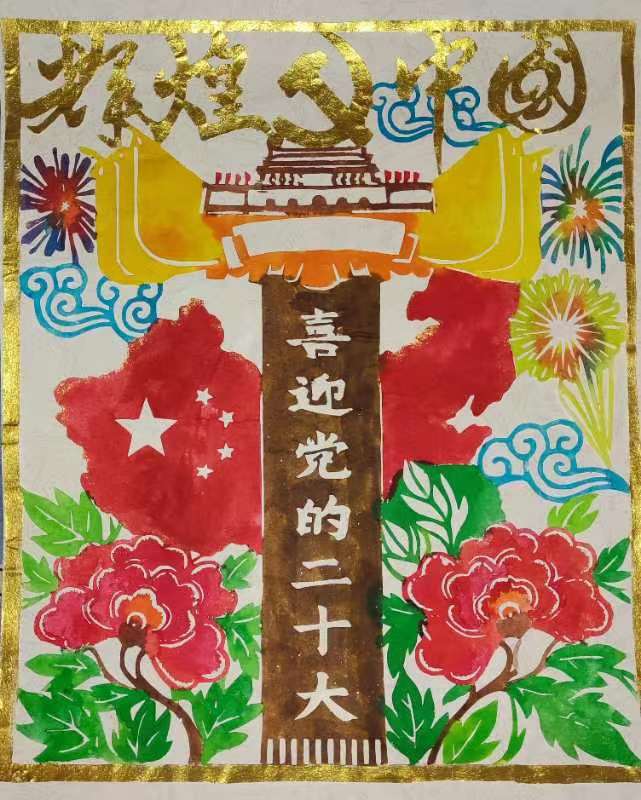 辉煌中国
喜迎党的二十大